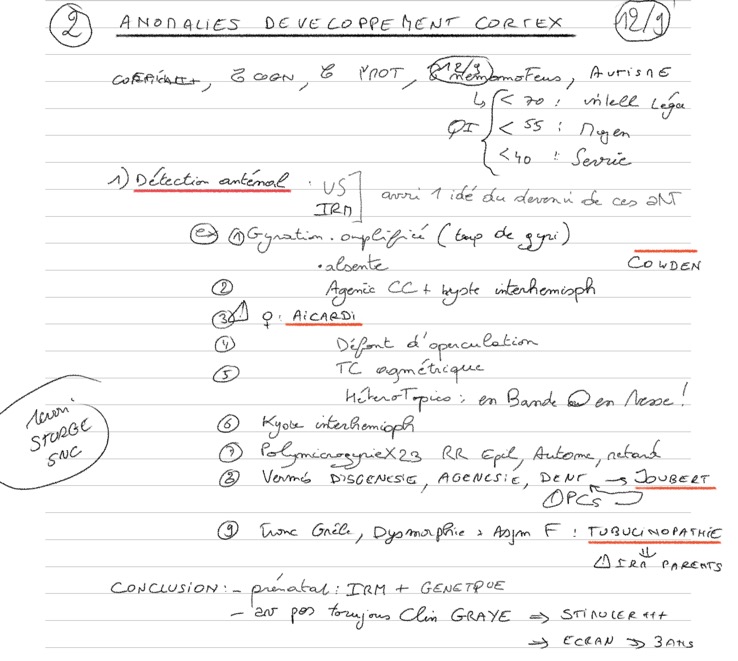 2 ANOMALIES DEVELOPPEMENT CORTEX 12/9
, COGN, MOT, 12/9 , AUTISME
↳ < 70 : Léga
QI < 55 : Moyen
< 40 : Sevrie
1) Détection anténal : US
IRM avoir 1 idé du devenir de ces aNT
ex ① Gyration . amplifié (trop de gyri)
. absente
COWDEN
② Agenie CC + kyste interhemisph
③ ⚠ ♀ : AICARDI
④ Défaut d'operculation
⑤ TC asymétrique
HéteroTopies : en Bande en Masse !
⑥ Kyste interhemisph
⑦ Polymicrogyrie X23 RR Epil, Autome, retard
STURGE
SNC
⑧ Vermis DISGENESIE, AGENESIE, DENT → JOUBERT
OPCs
⑨ Tronc Grêle, Dysmorphie > Asym F : TUBULINOPATHIE
⇓
⚠ IRM PARENTS
CONCLUSION : - prénatal : IRM + GENETQUE
- pas toujours Clin GRAVE ⇒ STIMULER +++
⇒ ECRAN ⇒ 3 ANS